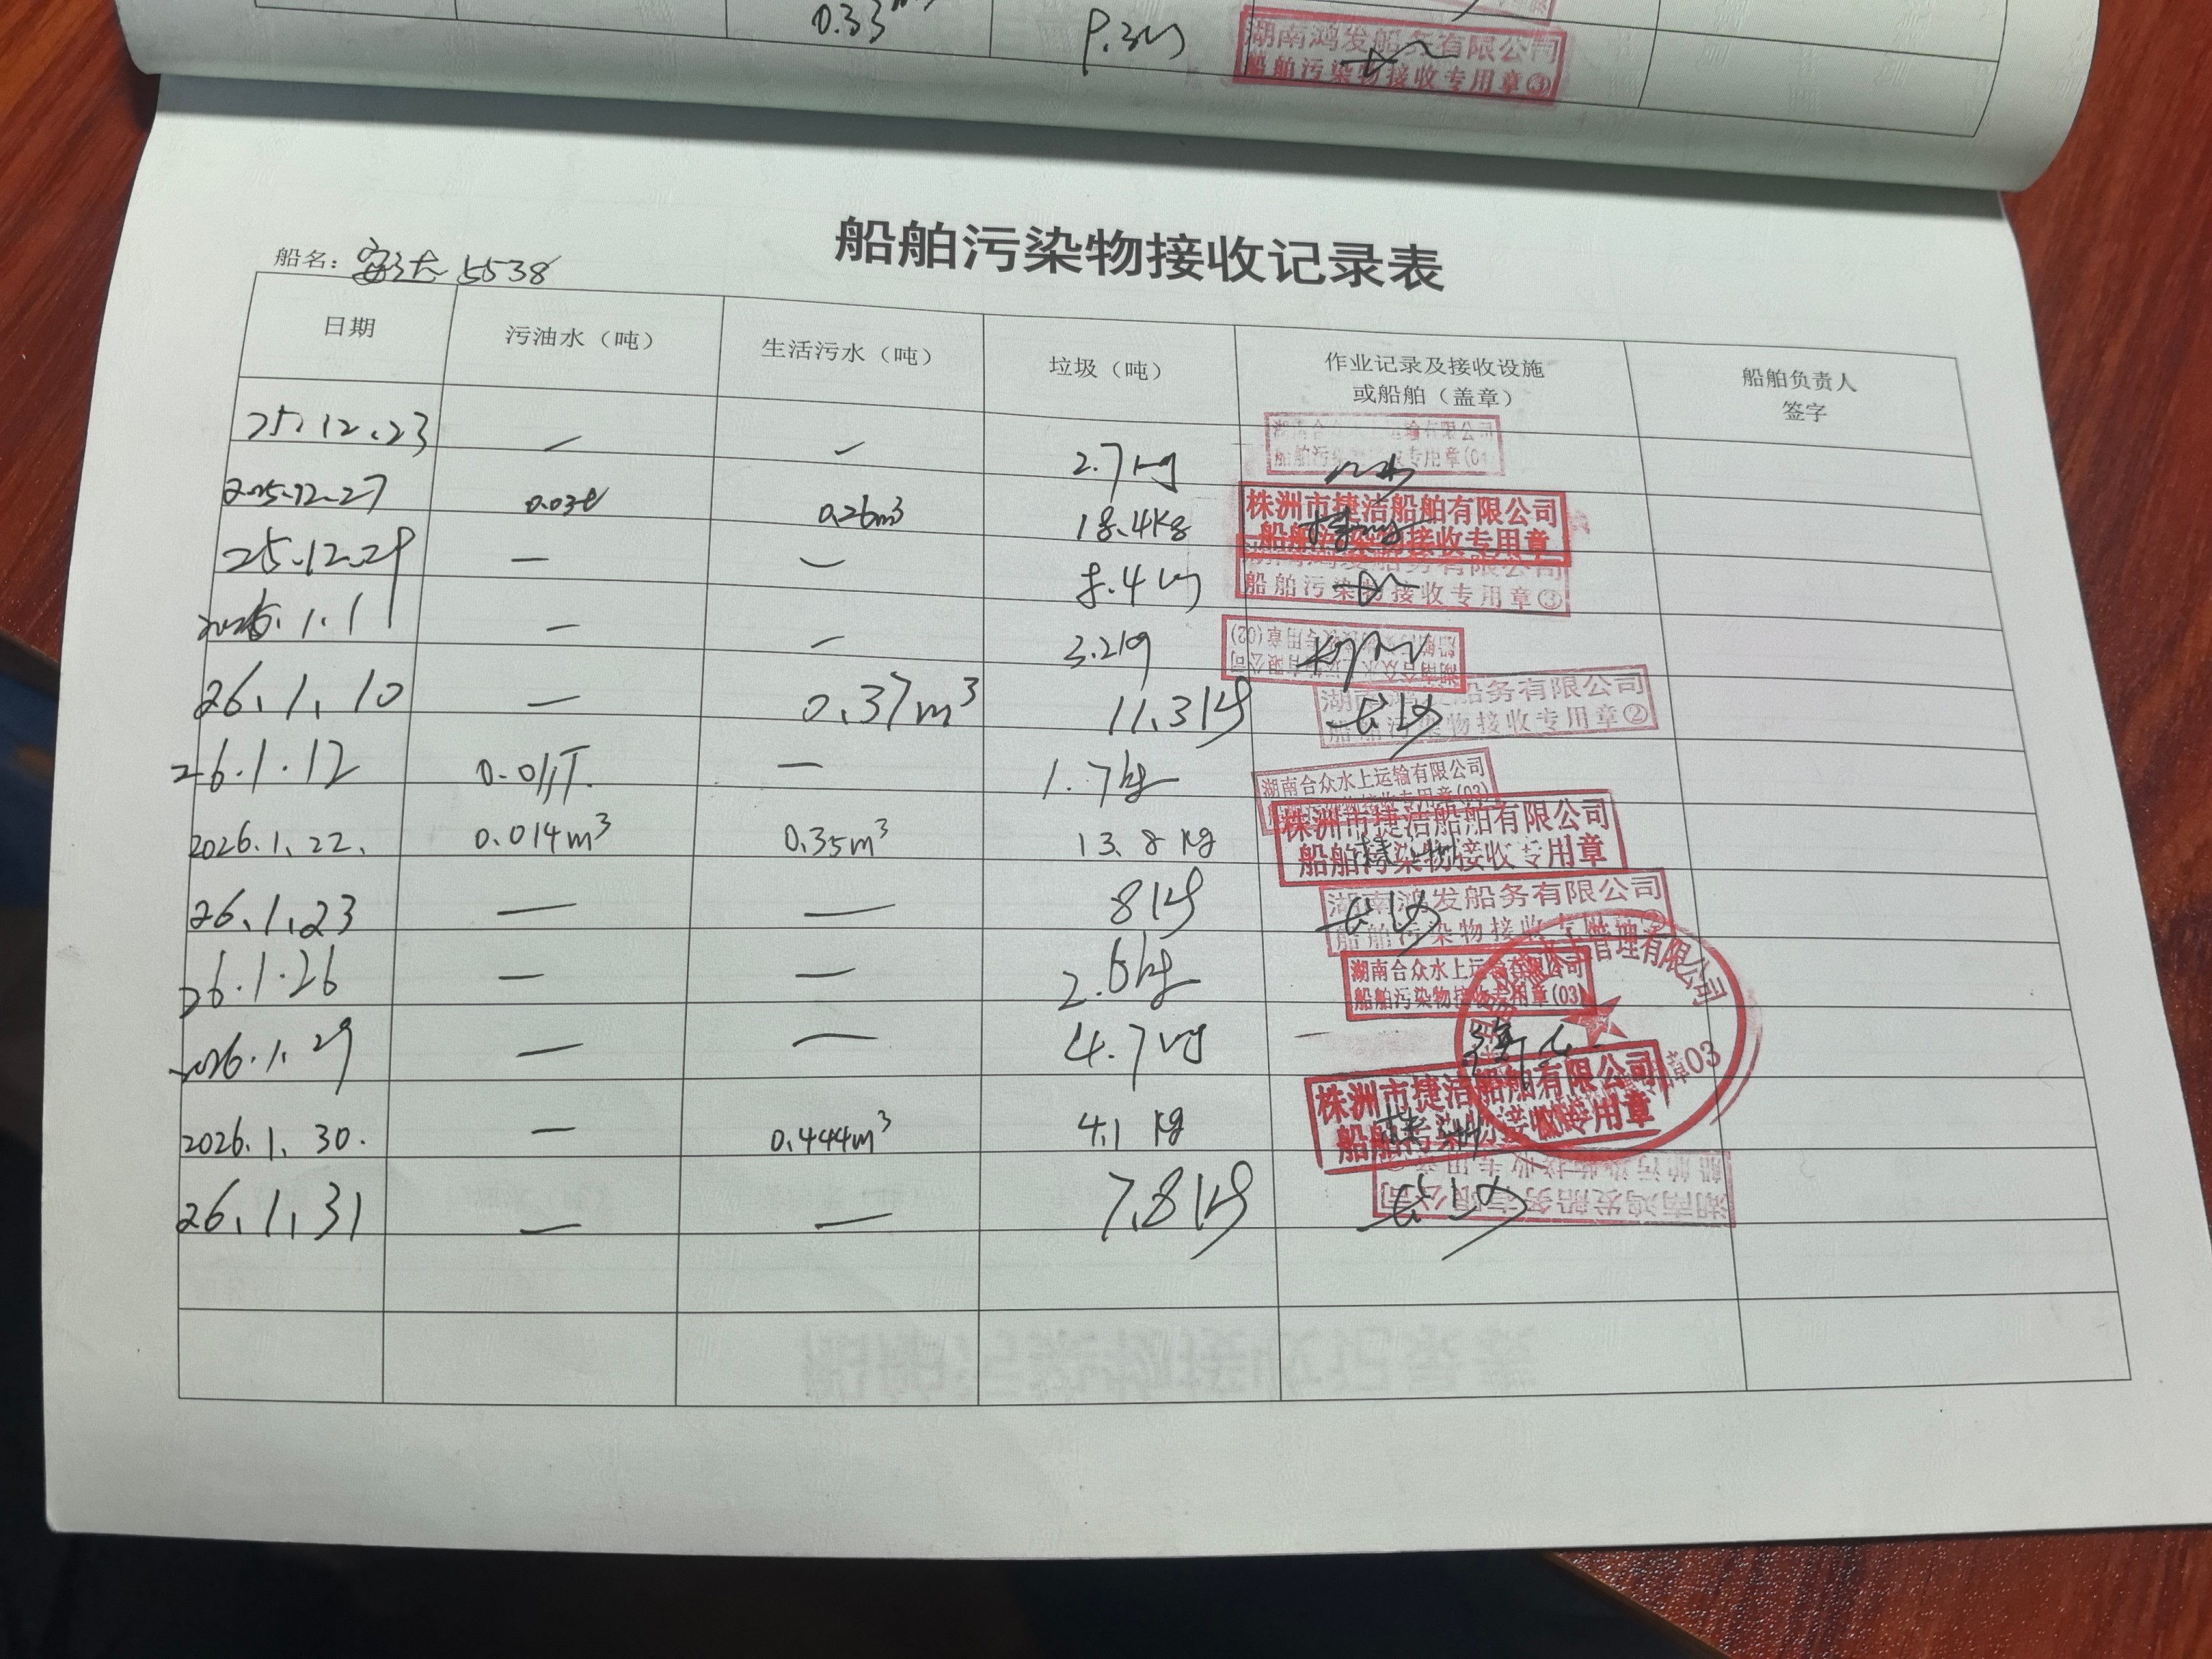 0.33
湖南鸿发船务有限公司
船舶污染物接收专用章③
船舶污染物接收记录表
船名: 安达 5538
日期 污油水（吨） 生活污水（吨） 垃圾（吨） 作业记录及接收设施或船舶（盖章） 船舶负责人签字
25.12.23 — — 2.7kg 湖南合众水上运输有限公司 船舶污染物接收专用章(01)
2025.12.27 0.03t 0.26m³ 18.4Kg 株洲市捷洁船舶有限公司 船舶污染物接收专用章
25.12.29 — — 8.4kg 湖南鸿发船务有限公司 船舶污染物接收专用章③
2026.1.1 — — 3.2kg 湖南合众水上运输有限公司 船舶污染物接收专用章(02)
26.1.10 — 0.37m³ 11.3kg 长沙 湖南鸿发船务有限公司 船舶污染物接收专用章②
26.1.12 — 1.7kg 湖南合众水上运输有限公司 船舶污染物接收专用章(03)
2026.1.22. 0.014m³ 0.35m³ 13.8kg 株洲 株洲市捷洁船舶有限公司 船舶污染物接收专用章
26.1.23 — — 8kg 长沙 湖南鸿发船务有限公司 船舶污染物接收专用章②
26.1.26 — — 2.6kg 湖南合众水上运输有限公司 船舶污染物接收专用章(03)
2026.1.29 — — 4.7kg 管理有限公司 章03
2026.1.30. — 0.444m³ 4.1kg 株洲 株洲市捷洁船舶有限公司 船舶污染物接收专用章
26.1.31 — — 7.8kg 长沙 湖南鸿发船务有限公司 船舶污染物接收专用章